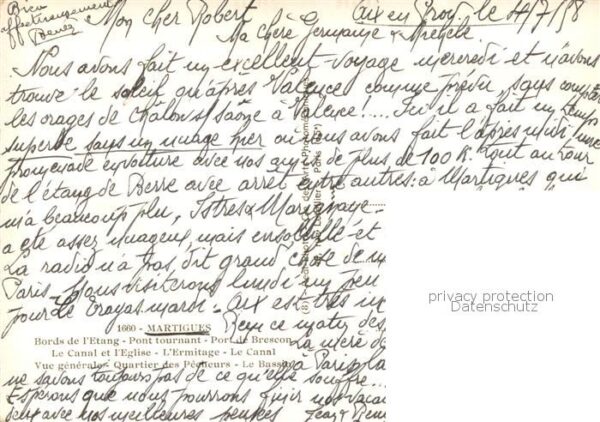 Bien
affectueusement
Mon cher Robert
Aix en Prov. le 4/7/58
Ma chère Germaine & Mireille
Nous avons fait un excellent voyage mercredi et n'avons
trouvé le soleil qu'après Valence comme prévu, sans compter
les orages de Châlon s/ Saône à Valence!.... Ici il a fait un temps
superbe sans un nuage hier où nous avons fait l'après midi une
promenade en voiture avec nos amis de plus de 100 K. tout autour
de l'étang de Berre avec arrêt entre autres: à Martigues qui
m'a beaucoup plu, Istres & Marignane.
a été assez nuageux, mais ensoleillé et
La radio n'a pas dit grand chose de
Paris. Nous visiterons lundi un peu
pour Le mardi. Aix est très
1660 - MARTIGUES
ce matin des
Bords de l'Etang - Pont tournant - Port de Brescon
La mère de
Le Canal et l'Eglise - L'Ermitage - Le Canal
à Paris, la
Vue générale - Quartier des Pêcheurs - Le Bassin
ne savons toujours pas de ce qu'elle souffre...
Espérons que nous pourrons finir nos vacan
avec nos meilleures pensées Jean &
privacy protection
Datenschutz